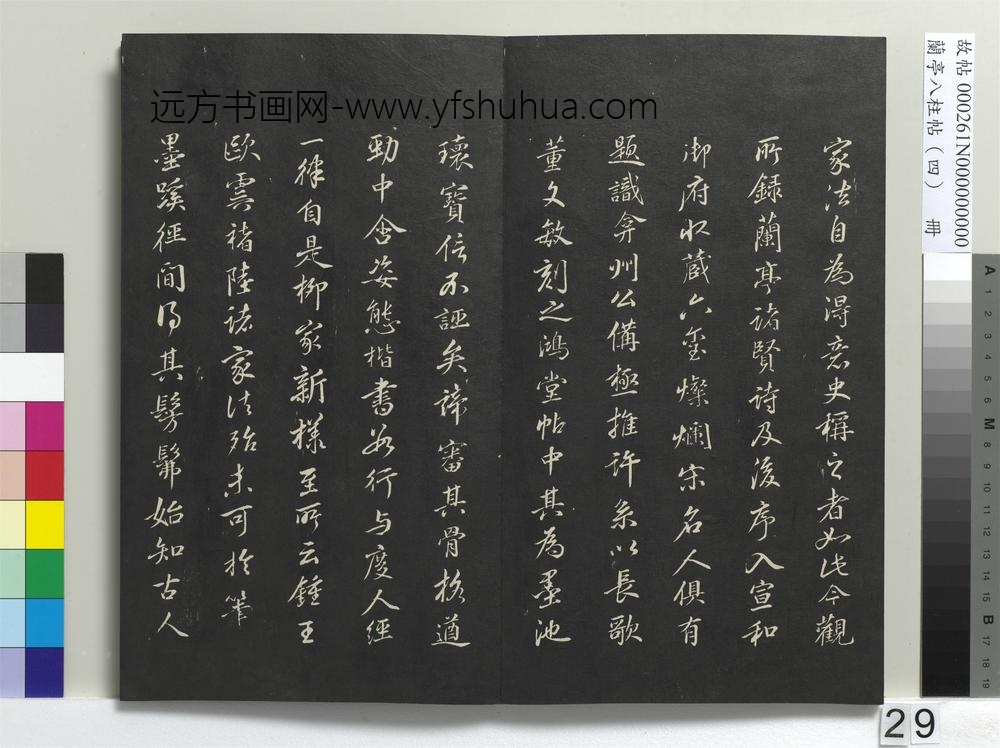 家法自為得意史稱之者如此今觀
所錄蘭亭諸賢詩及後序入宣和
御府收藏六璽燦爛宋名人俱有
題識弇州公備極推許系以長歌
董文敏刻之鴻堂帖中其為墨池
瓌寶信不誣矣諦審其骨格遒
勁中含姿態楷書如行与度人經
一律自是柳家新様至所云鍾王
歐虞褚陸諸家法殆未可於筆
墨蹊徑間得其髣髴始知古人
远方书画网-www.yfshuhua.com
故帖 000261N000000000
蘭亭八柱帖(四) 冊
A
1
2
3
4
5
6
M
8
9
10
11
12
13
14
15
B
17
18
19
29